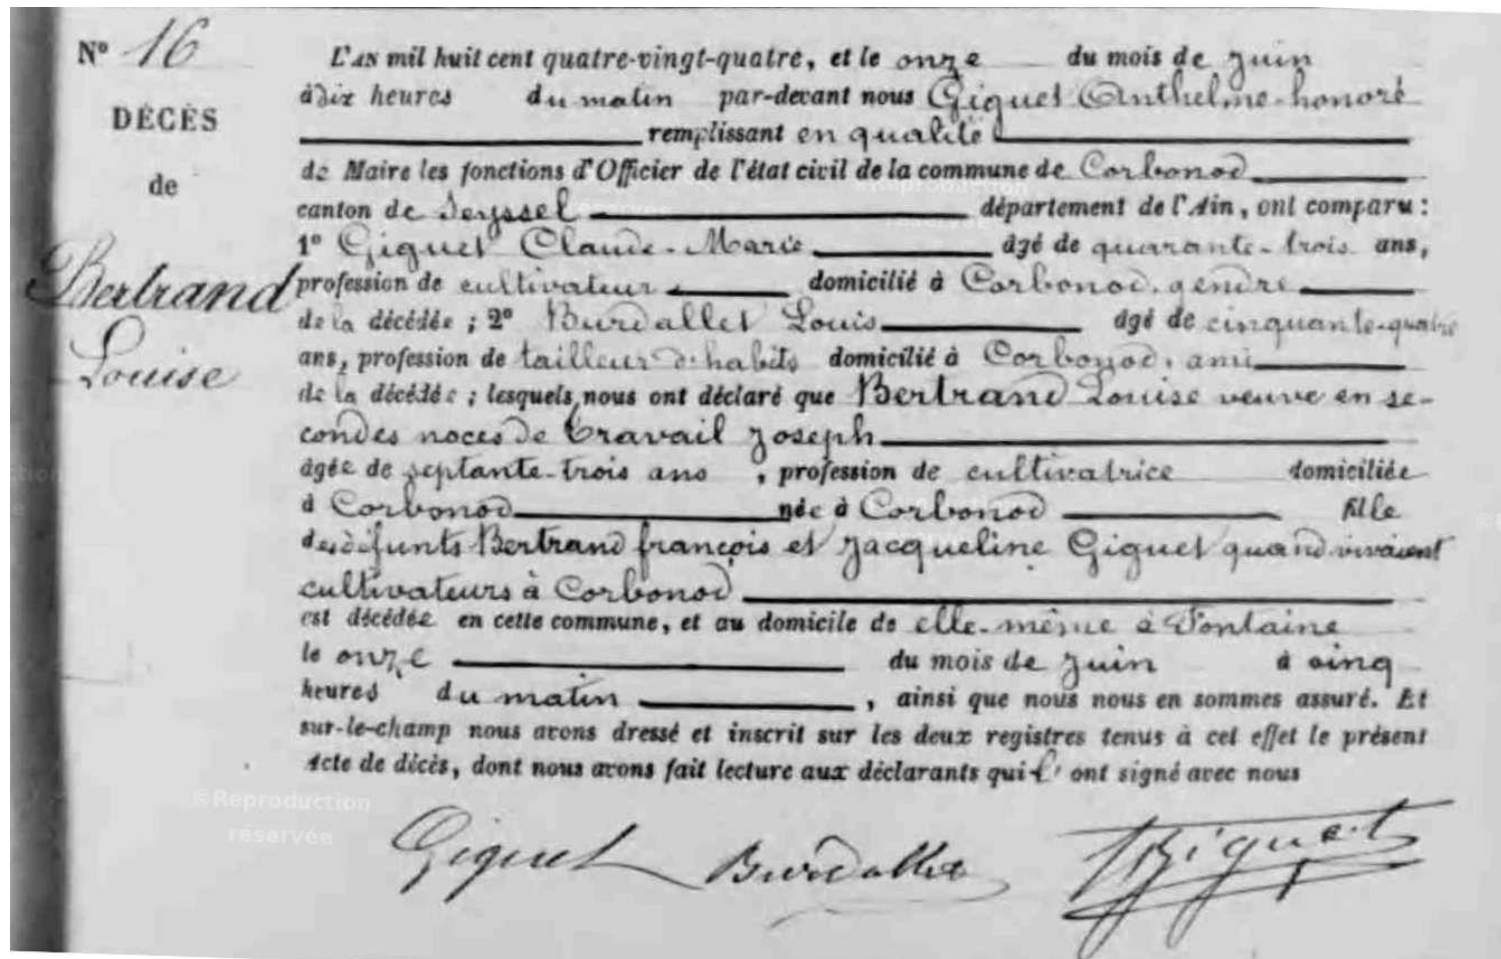 N° 16
DÉCÈS
de
Bertrand
Louise
L'AN mil huit cent quatre-vingt-quatre, et le onze du mois de juin
à dix heures du matin par-devant nous Giguet Anthelme-honoré
remplissant en qualité
de Maire les fonctions d'Officier de l'état civil de la commune de Corbonod
canton de Seyssel département de l'Ain, ont comparu :
1° Giguet Claude-Marie âgé de quarante-trois ans,
profession de cultivateur domicilié à Corbonod, gendre
de la décédée ; 2° Burdallet Louis âgé de cinquante-quatre
ans, profession de tailleur d'habits domicilié à Corbonod, ami
de la décédée ; lesquels nous ont déclaré que Bertrand Louise veuve en se-
condes noces de Travail Joseph
âgée de septante-trois ans, profession de cultivatrice domiciliée
à Corbonod née à Corbonod fille
des défunts Bertrand françois et Jacqueline Giguet quand vivaient
cultivateurs à Corbonod
est décédée en cette commune, et au domicile de elle-même à Fontaine
le onze du mois de juin à cinq
heures du matin, ainsi que nous nous en sommes assuré. Et
sur-le-champ nous avons dressé et inscrit sur les deux registres tenus à cet effet le présent
Acte de décès, dont nous avons fait lecture aux déclarants qui l' ont signé avec nous
©Reproduction
réservée
Giguet Burdallet Giguet